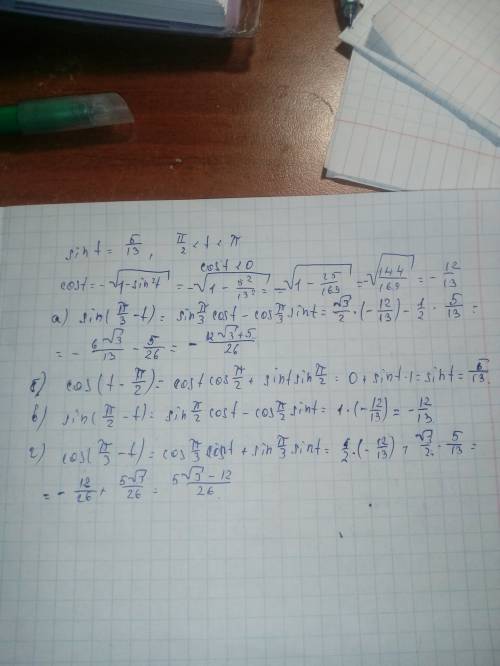 sin t = 5/13, π/2 < t < π
cos t < 0
cos t = -√(1-sin²t) = -√(1 - 5²/13²) = -√(1 - 25/169) = -√(144/169) = -12/13
а) sin(π/3 - t) = sin π/3 cos t - cos π/3 sin t = √3/2 · (-12/13) - 1/2 · 5/13 =
= - 6√3/13 - 5/26 = - 12√3+5/26
б) cos(t - π/2) = cos t cos π/2 + sin t sin π/2 = 0 + sin t · 1 = sin t = 5/13.
в) sin(π/2 - t) = sin π/2 cos t - cos π/2 sin t = 1 · (-12/13) = -12/13
г) cos(π/3 - t) = cos π/3 cos t + sin π/3 sin t = 1/2 · (-12/13) + √3/2 · 5/13 =
= - 12/26 + 5√3/26 = 5√3 - 12/26.